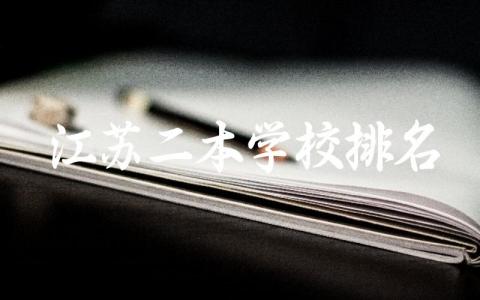 江苏二本学校排名